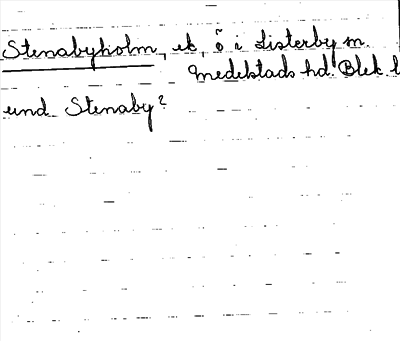 Stenabyholm, ek, ö i Listerby sn.
Medelstads hd. Blek. l
und Stenaby?